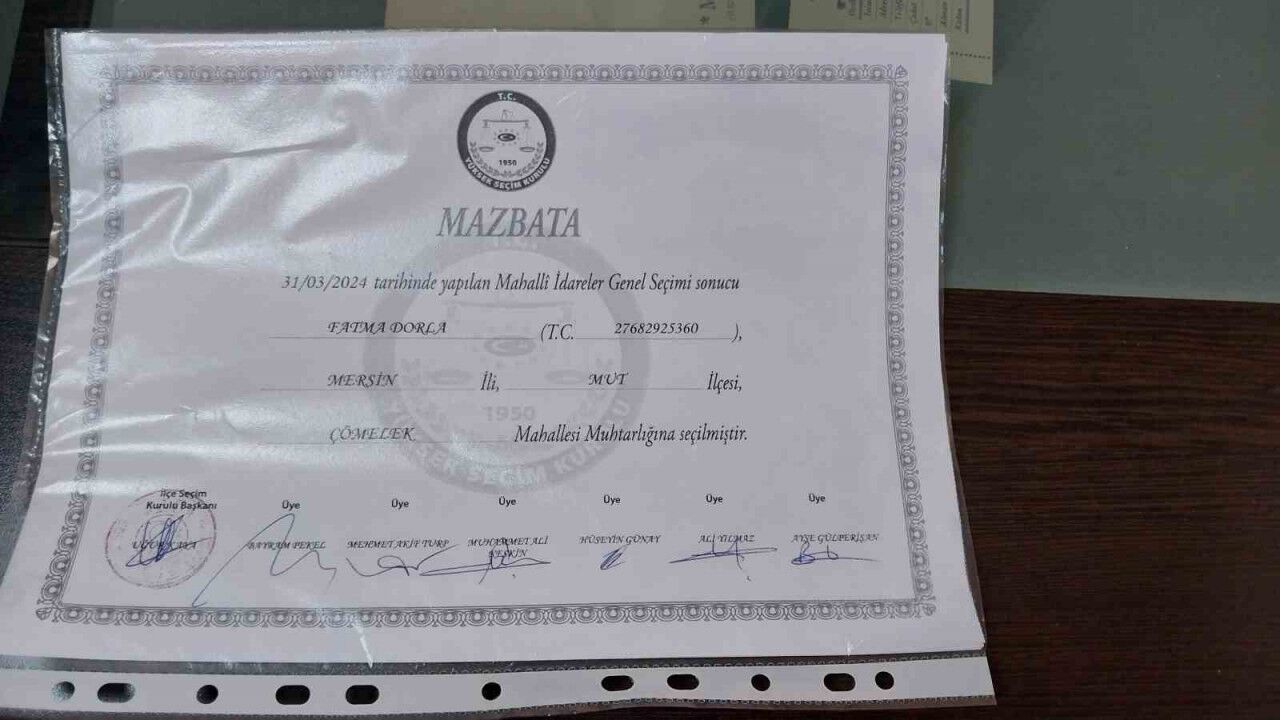 T.C.
1950
YÜKSEK SEÇİM KURULU
MAZBATA
31/03/2024 tarihinde yapılan Mahallî İdareler Genel Seçimi sonucu
FATMA DORLA (T.C. 27682925360 ),
MERSİN İli, MUT İlçesi,
1950
ÇÖMELEK Mahallesi Muhtarlığına seçilmiştir.
YÜKSEK SEÇİM KURULU
İlçe Seçim
Kurulu Başkanı Üye Üye Üye Üye Üye Üye
BAYRAM PEKEL MEHMET AKİF TURP MUHAMMET ALİ HÜSEYİN GÜNAY ALİ YILMAZ AYŞE GÜLPERİŞAN
KESKİN